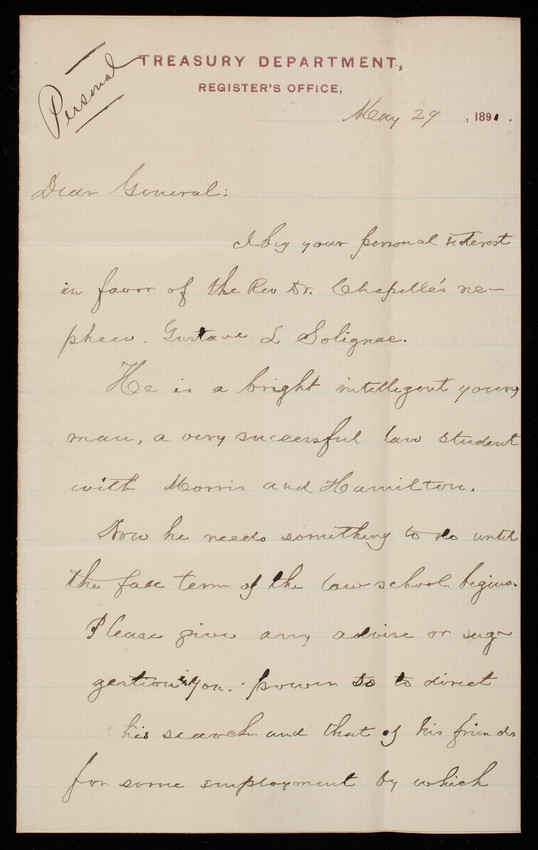 Personal
TREASURY DEPARTMENT,
REGISTER'S OFFICE,
May 29, 1891.
Dear General:
I beg your personal interest
in favor of the Rev Dr. Chapelle's ne-
phew. Gustave L Solignac.
He is a bright intelligent young
man, a very successful law student
with Morris and Hamilton.
Now he needs something to do until
the fall term of the law school begins.
Please give any advise or sug-
gestion in your power so to direct
his search and that of his friends
for some employment by which